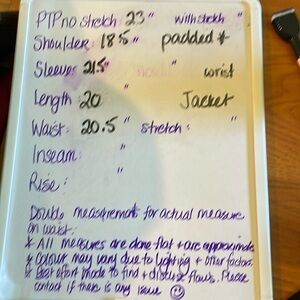 PTP no stretch 23" with stretch "
Shoulder: 18.5" padded *
Sleeves 21.5" wrist
Length 20" Jacket
Waist: 20.5" stretch: "
Inseam: "
Rise: "
Double measurements for actual measure
on waist.
* All measures are done flat + are approximate
* Colour may vary due to lighting + other factors
* Best effort made to find + disclose flaws. Please
contact if there is any issue ☺